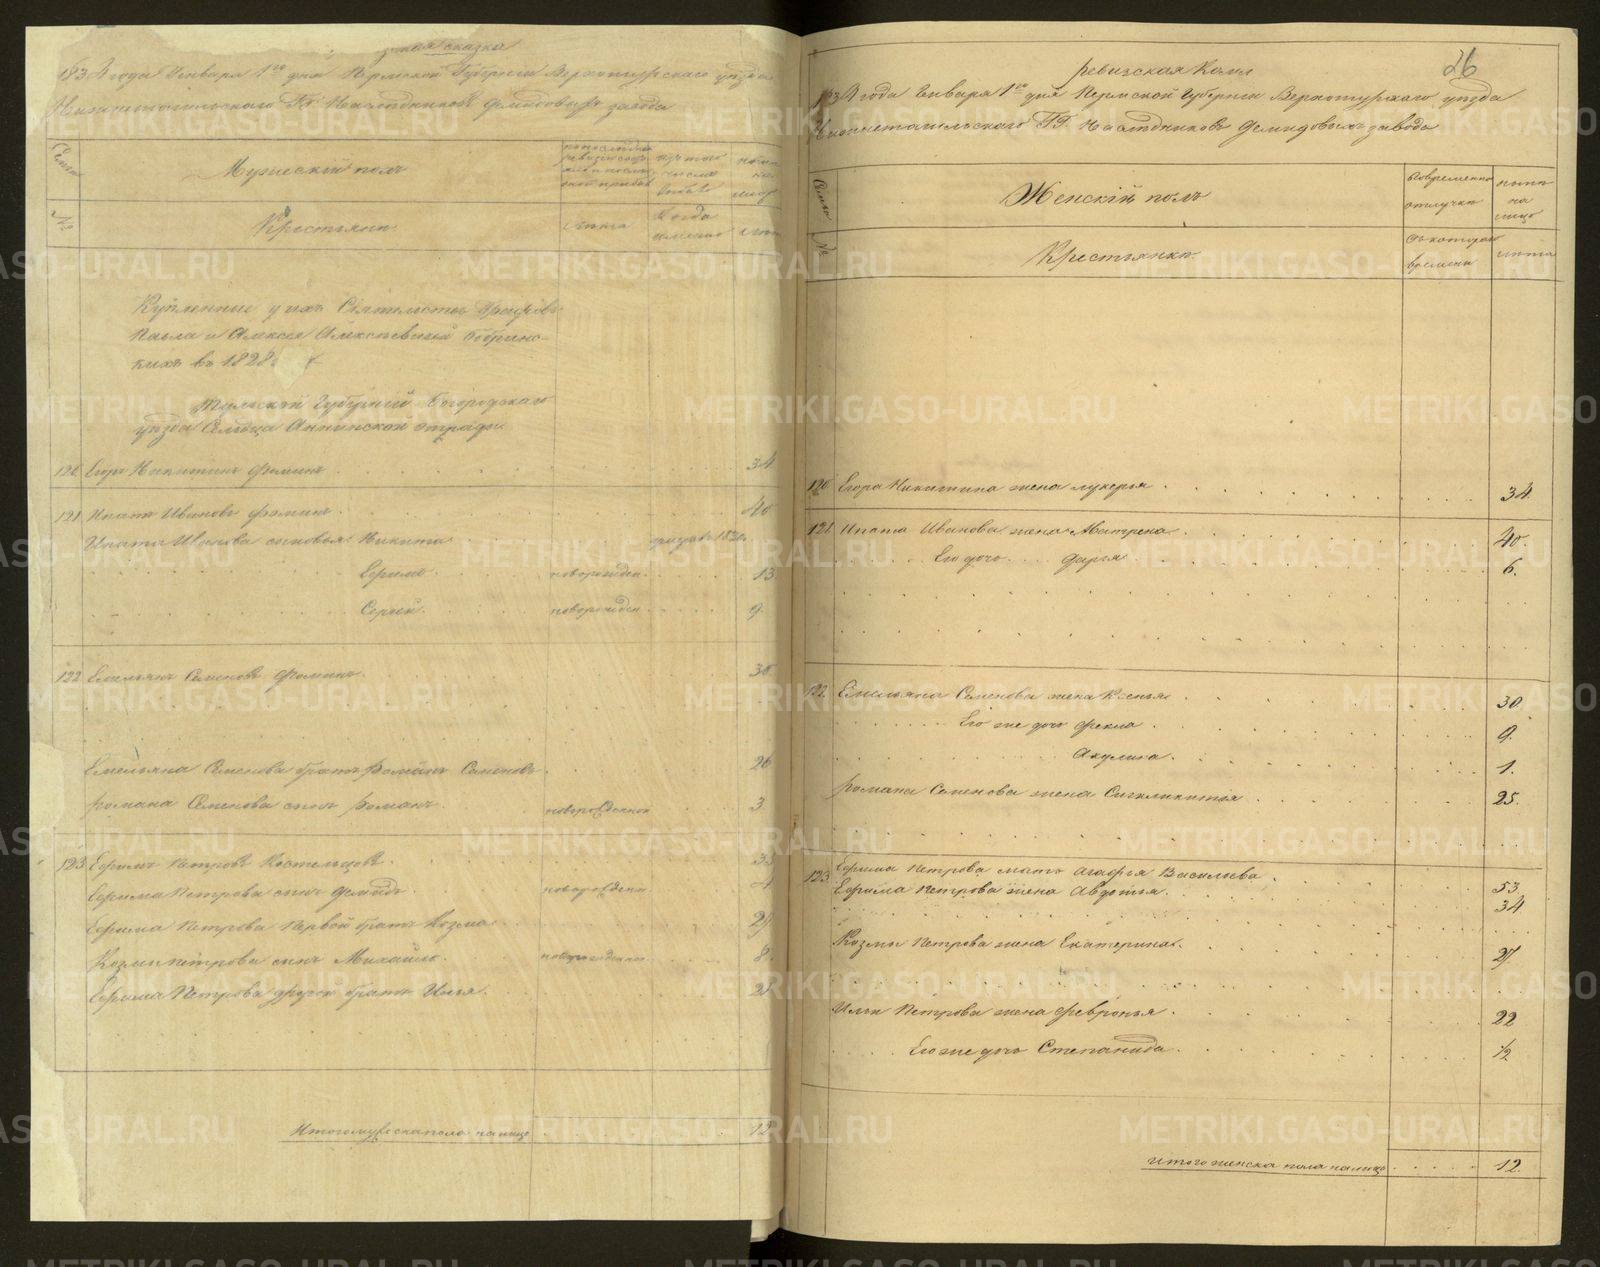 зская сказка
1834 года Генваря 1го дня Пермской Губернии Верхотурскаго уезда
Нижнетагильскаго ГГ. Наследников Демидовых завода
Семьи
Мужеской пол
№
Крестьяне
лета
Когда именно
лета
Купленные у их Сиятельств Графов
Павла и Алексея Алексеевичей Бобринс-
ких в 1828 г
Тульской Губернии Богородскаго
уезда Сельца Аннинской отрады
120 Егор Никитин Фомин 34
121 Ипат Иванов Фомин 40
Ипата Иванова сыновья Никита
Ефрим новорожден 13
Сергей новорожден 9
122 Емельян Семенов Фомин 30
Емельяна Семенова брат Роман Семенов 26
Романа Семенова сын Роман новорожденной 3
123 Ефрим Петров Костельцов 35
Ефрима Петрова сын Демид новорожден 4
Ефрима Петрова первой брат Козма 29
Козмы Петрова сын Михайло новорожденно 8
Ефрима Петрова другой брат Илья
Итого мужеска пола на лицо 12
26
ревизская
1834 года Генваря 1го дня Пермской Губернии Верхотурскаго уезда
Нижнетагильскаго ГГ. Наследников Демидовых завода
Семьи
Женскій пол
во временной отлучке
ныне на лицо
№
Крестьянки
с котораго времени
лета
120 Егора Никитина жена Лукерья 34
121 Ипата Иванова жена 40
Его дочь Дарья 6
122 Емельяна Семенова жена Ксенья 30
Его же дочь Фекла 9
Акулина 1
Романа Семенова жена 25
123 Ефрима Петрова мать Агафья Васильева 53
Ефрима Петрова жена Авдотья 34
Козмы Петрова жена Екатерина 27
Ильи Петрова жена Февронья 22
Его же дочь Степанида 1/2
Итого женска пола на лицо 12
METRIKI.GASO-URAL.RU